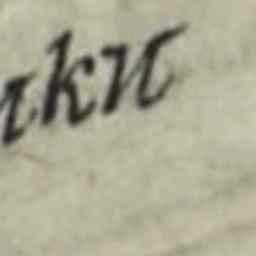 ики